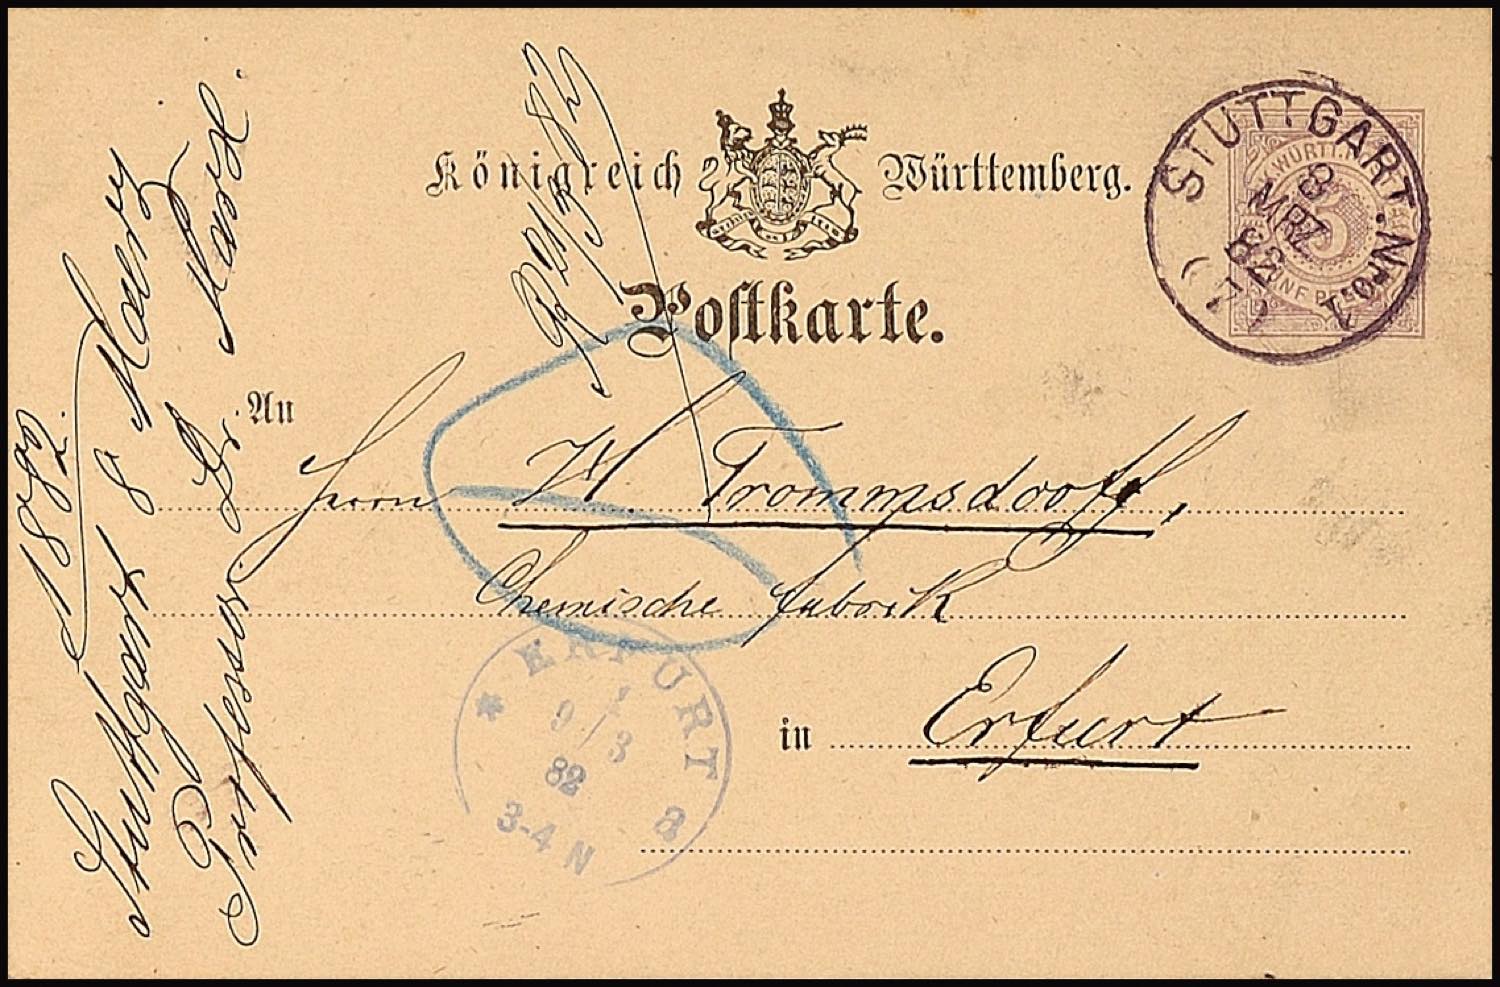 Königreich Württemberg.
Postkarte.
An
Herrn H. Trommsdorff,
Chemische Fabrik
in Erfurt
STUTTGART. Nro. 1.
8
MRZ
82
K. WÜRTT.
5
FÜNF
ERFURT
9/3
82
3-4 N
a
1882.
Stuttgart 8 Maerz
Professor Dr. Marx.